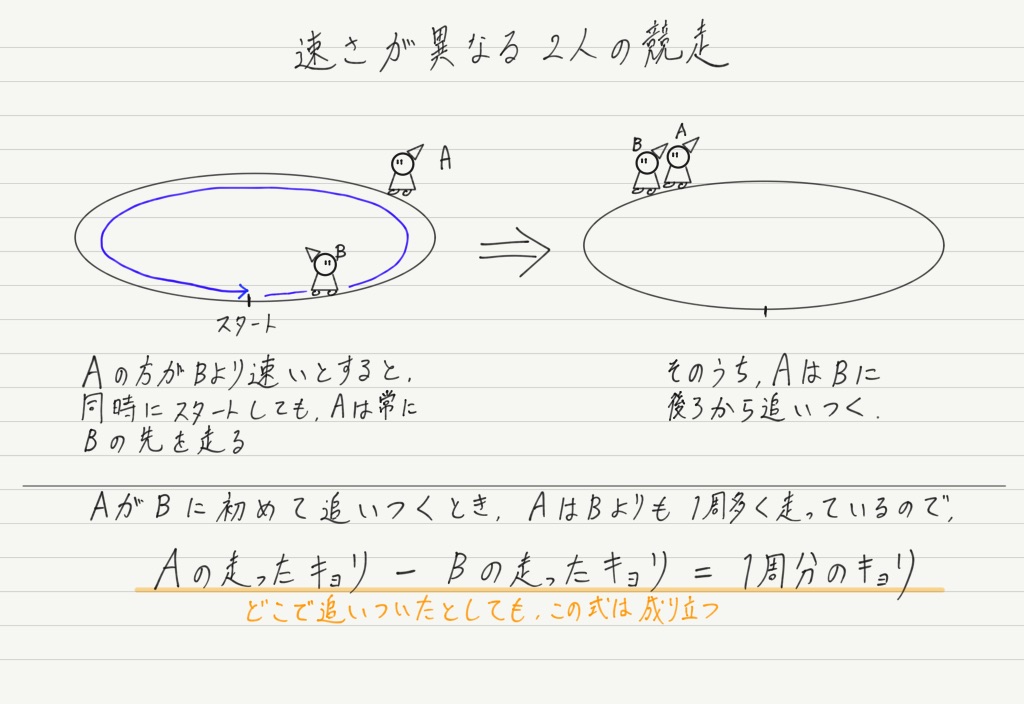 速さが異なる2人の競走
A
B
スタート
B
A
Aの方がBより速いとすると,
同時にスタートしても,Aは常に
Bの先を走る
そのうち,AはBに
後ろから追いつく.
AがBに初めて追いつくとき,AはBよりも1周多く走っているので,
Aの走ったキョリ − Bの走ったキョリ = 1周分のキョリ
どこで追いついたとしても,この式は成り立つ